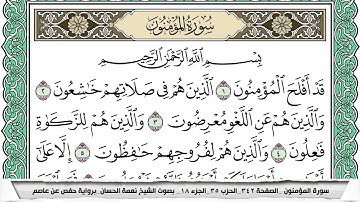 سُورَةُ المُؤْمِنُونَ
بِسْمِ اللَّهِ الرَّحْمَٰنِ الرَّحِيمِ
قَدْ أَفْلَحَ الْمُؤْمِنُونَ ١ الَّذِينَ هُمْ فِي صَلَاتِهِمْ خَاشِعُونَ ٢
وَالَّذِينَ هُمْ عَنِ اللَّغْوِ مُعْرِضُونَ ٣ وَالَّذِينَ هُمْ لِلزَّكَوٰةِ
فَاعِلُونَ ٤ وَالَّذِينَ هُمْ لِفُرُوجِهِمْ حَافِظُونَ ٥ إِلَّا عَلَىٰ
سورة المؤمنون _ الصفحة ٣٤٢_ الحزب ٣٥_ الجزء ١٨ _ بصوت الشيخ نعمة الحسان _برواية حفص عن عاصم